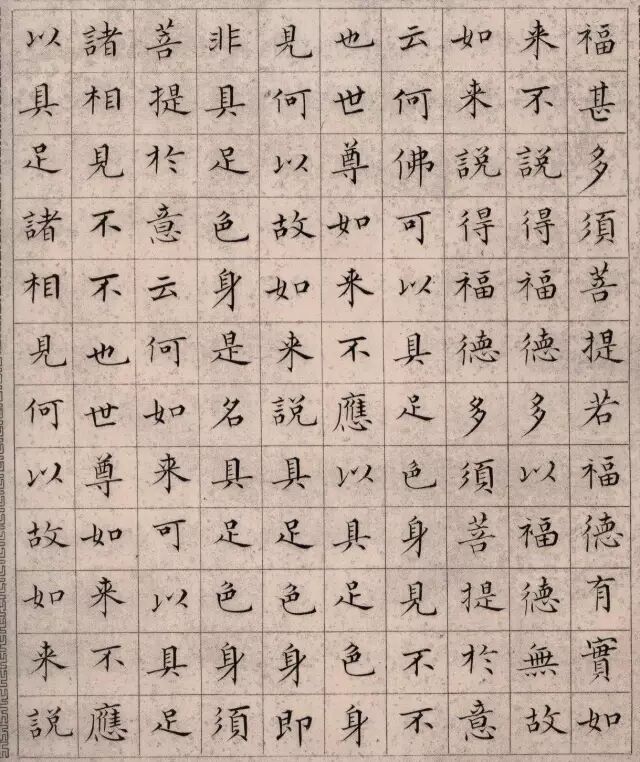 福甚多須菩提若福德有實如
来不說得福德多以福德無故
如来說得福德多須菩提於意
云何佛可以具足色身見不不
也世尊如来不應以具足色身
見何以故如来說具足色身即
非具足色身是名具足色身須
菩提於意云何如来可以具足
諸相見不不也世尊如来不應
以具足諸相見何以故如来說